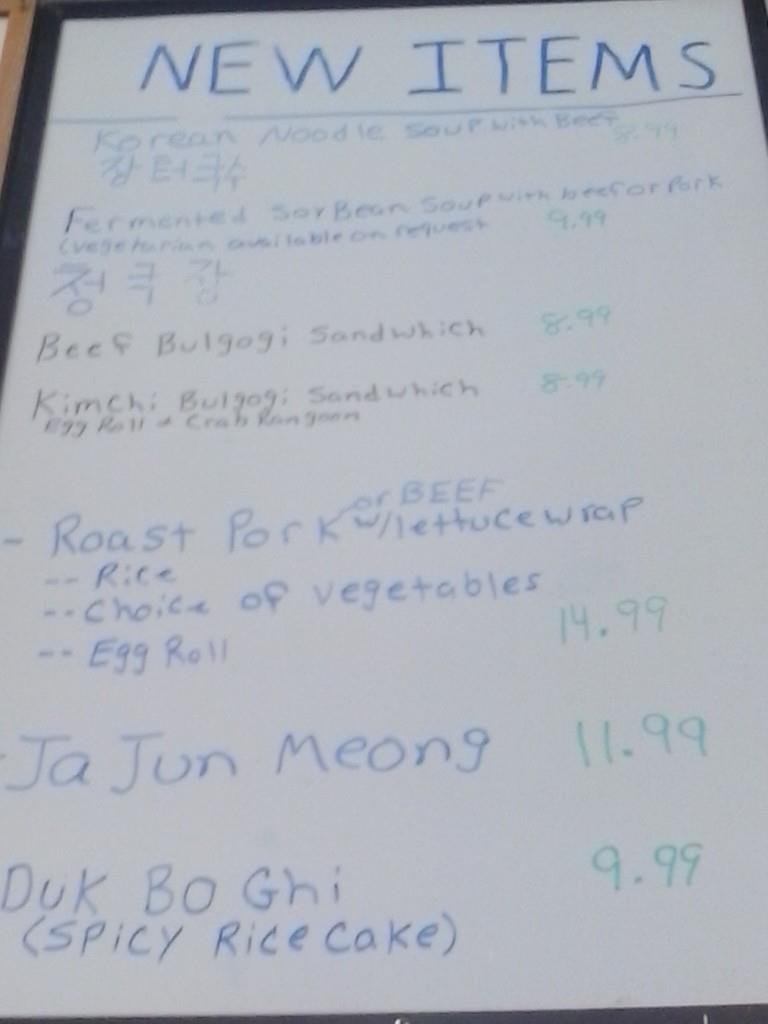 NEW ITEMS
Korean Noodle Soup with Beef 8.99
장터국수
Fermented Soy Bean Soup with beef or Pork
(vegetarian available on request 9.99
청국장
Beef Bulgogi Sandwhich 8.99
Kimchi Bulgogi Sandwhich 8.99
Egg Roll + Crab Rangoon
or BEEF
- Roast Pork w/lettuce wrap
-- Rice
-- Choice of vegetables
-- Egg Roll 14.99
- Ja Jun Meong 11.99
Duk Bo Ghi 9.99
(SPICY Rice cake)